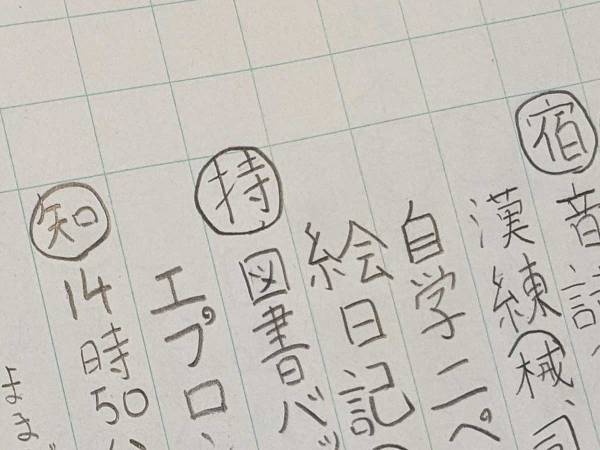 宿 音読
漢練(械、司
自学二ペ
絵日記(
持 図書バッ
エプロン
知 14時50分
まで